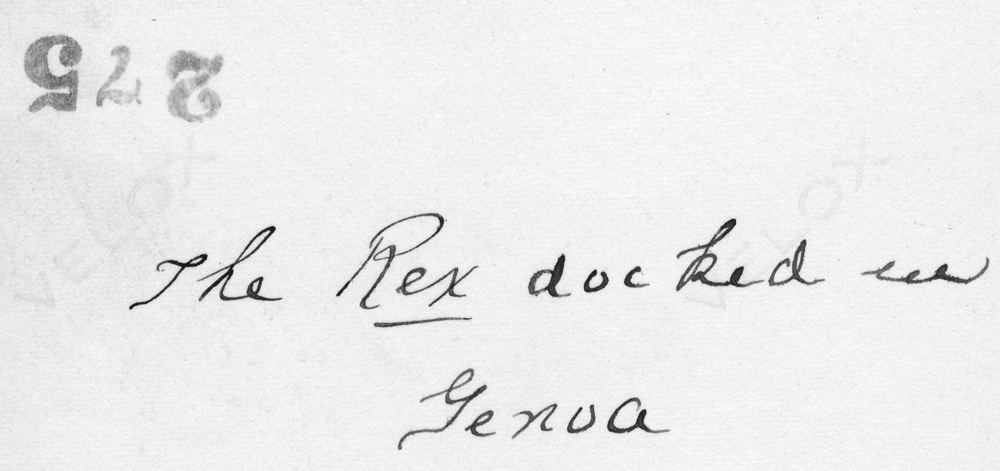 275
VELOX
VELOX
The Rex docked in
Genoa